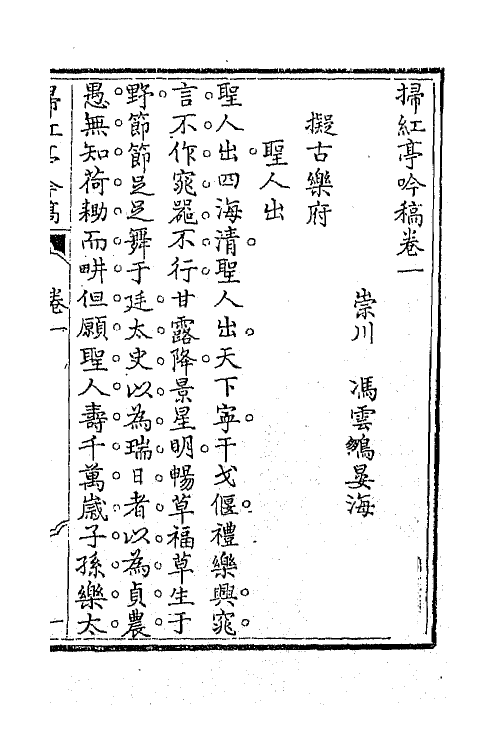 掃紅亭吟稿卷一
崇川　馮雲鵷晏海
擬古樂府
聖人出
聖人出四海清聖人出天下寧干戈偃禮樂興窕
言不作窕器不行甘露降景星明暢草福草生于
野節節足足舞于廷太史以為瑞日者以為貞農
愚無知荷耡而畊但願聖人壽千萬歲子孫樂太
掃紅亭吟稿
卷一
一